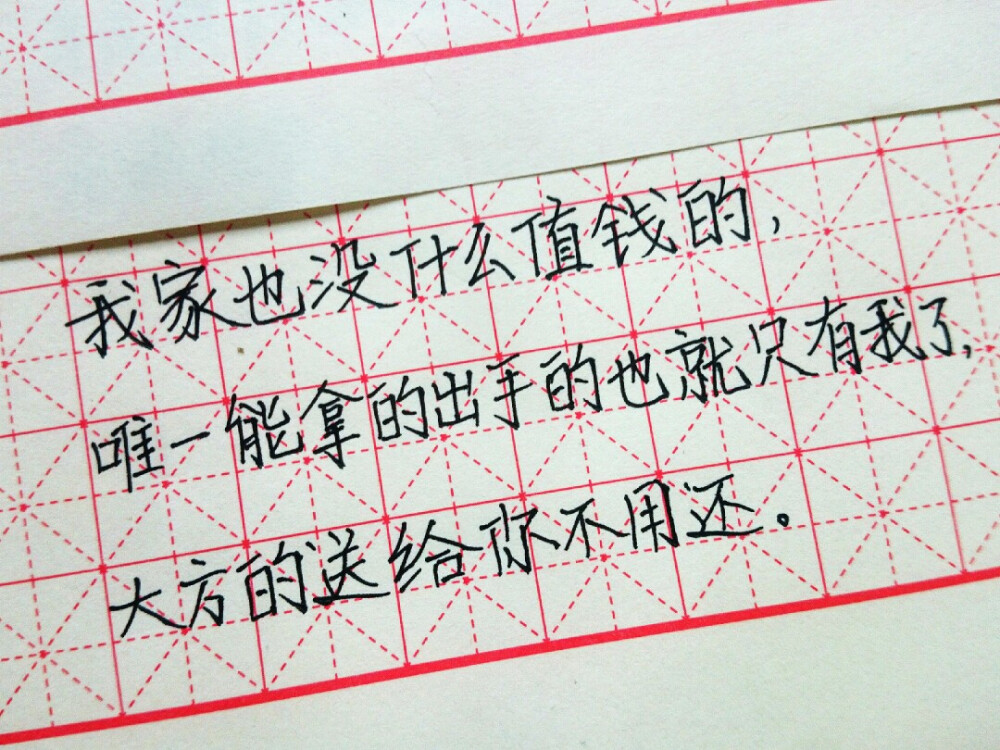 我家也没什么值钱的,
唯一能拿的出手的也就只有我了,
大方的送给你不用还。